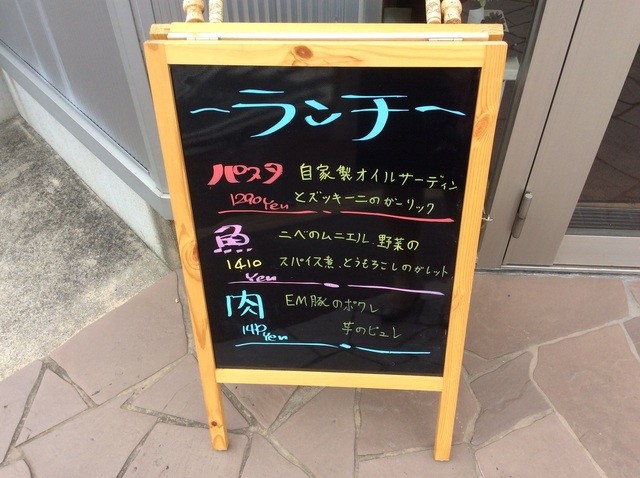 ～ランチ～
パスタ 自家製オイルサーディン
1290yen とズッキーニのガーリック
魚 ニベのムニエル.野菜の
1410 スパイス煮.とうもろこしのガレット.
yen
肉 EM豚のポワレ
yen 芋のピュレ